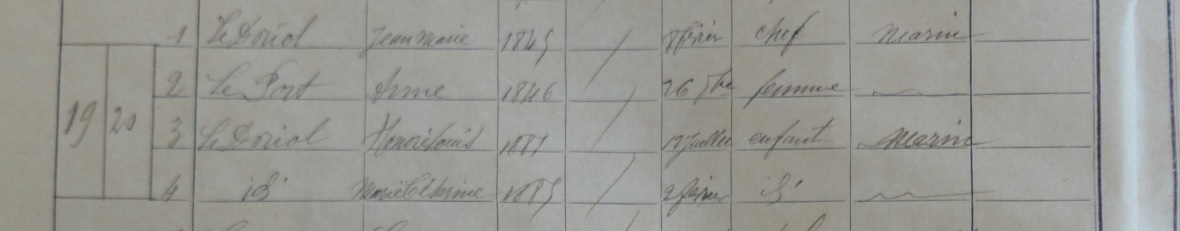 1 Le Doriol Jean marie 1845 / février chef marin
2 Le Port Anne 1846 / 26 7bre femme
19 20
3 Le Doriol Honoré Louis 1881 / 12 Juillet enfant marin
4 id 1885 / 2 février id